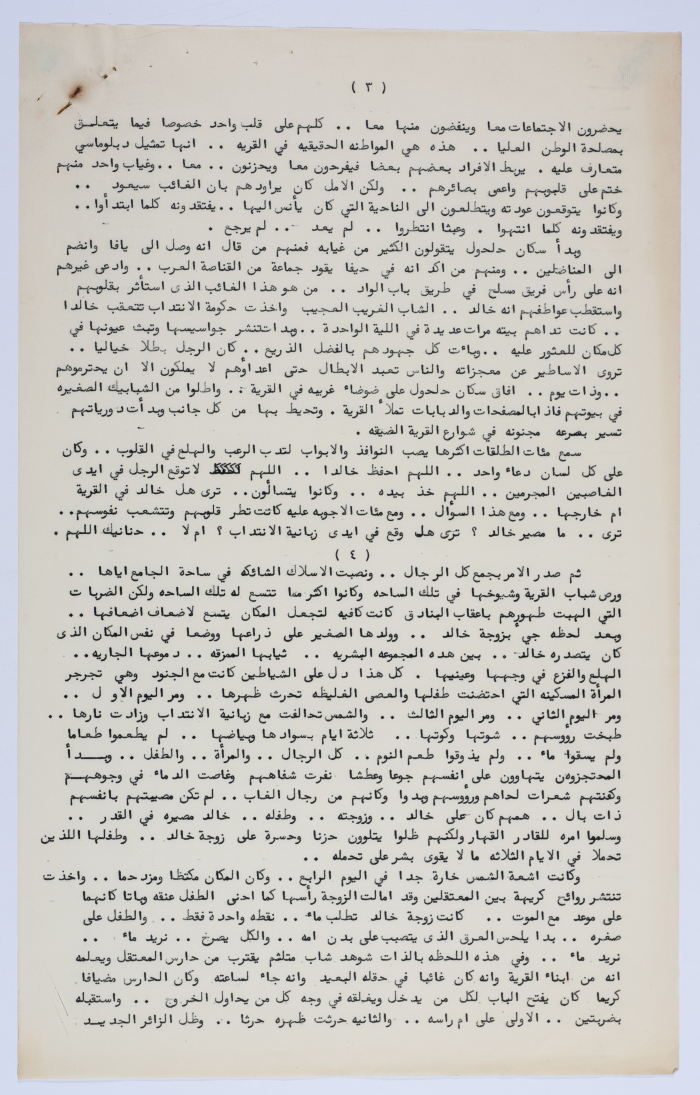 ( ٣ )
يحضرون الاجتماعات معا وينفضون منها معا .. كلهم على قلب واحد خصوصا فيما يتعلـق
بمصلحة الوطن العليا .. هذه هي المواطنه الحقيقيه في القريه .. انها تمثيل دبلوماسي
متعارف عليه . يربط الافراد بعضهم بعضا فيفرحون معا ويحزنون .. معا .. وغياب واحد منهم
ختم على قلوبهم واعمى بصائرهم .. ولكن الامل كان يراودهم بان الغائب سيعود ..
وكانوا يتوقعون عودته ويتطلعون الى الناحية التي كان يأنس اليها .. يفتقدونه كلما ابتدأوا ..
ويفتقدونه كلما انتهوا . وعبثا انتظروا .. لم يعد .. لم يرجع .
وبدأ سكان حلحول يتقولون الكثير من غيابه فمنهم من قال انه وصل الى يافا وانضم
الى المناضلين .. ومنهم من اكد انه في حيفا يقود جماعة من القناصة العرب .. وادعى غيرهم
انه على رأس فريق مسلح في طريق باب الواد .. من هو هذا الغائب الذى استأثر بقلوبهم
واستقطب عواطفهم انه خالد .. الشاب الغريب العجيب واخذت حكومة الانتداب تتعقب خالدا
.. كانت تداهم بيته مرات عديدة في الليلة الواحدة .. وبدات تنشر جواسيسها وتبث عيونها في
كل مكان للعثور عليه .. وباءت كل جهودهم بالفضل الذريع .. كان الرجل بطلا خياليا ..
تروى الاساطير عن معجزاته والناس تعبد الابطال حتى اعداؤهم لا يملكون الا ان يحترموهم
.. وذات يوم .. افاق سكان حلحول على ضوضاء غريبه في القرية .. واطلوا من الشبابيك الصغيره
في بيوتهم فاذا بالمصفحات والدبابات تملأ القرية . وتحيط بها من كل جانب وبدأت دورياتهم
تسير بصرعه مجنونه في شوارع القرية الضيقه .
سمع مئات الطلقات اكثرها يصب النوافذ والابواب لتدب الرعب والهلع في القلوب .. وكان
على كل لسان دعاء واحد .. اللهم احفظ خالدا .. اللهم لا توقع الرجل في ايدى
الغاصبين المجرمين .. اللهم خذ بيده .. وكانوا يتسألون .. ترى هل خالد في القرية
ام خارجها .. ومع هذا السؤال .. ومع مئات الاجوبه عليه كانت تطر قلوبهم وتتشعب نفوسهم ..
ترى .. ما مصير خالد ؟ ترى هل وقع في ايدى زبانية الانتداب ؟ ام لا .. حنانيك اللهم .
( ٤ )
ثم صدر الامر بجمع كل الرجال .. ونصبت الاسلاك الشائكه في ساحة الجامع اياها ..
ورص شباب القرية وشيوخها في تلك الساحه وكانوا اكثر مما تتسع له تلك الساحه ولكن الضربات
التي الهبت ظهورهم باعقاب البنادق كانت كافيه لتجعل المكان يتسع لاضعاف اضعافها ..
وبعد لحظه جيْ بزوجة خالد .. وولدها الصغير على ذراعها ووضعا في نفس المكان الذى
كان يتصدره خالد .. بين هده المجموعه البشريه .. ثيابها الممزقه .. دموعها الجاريه ..
الهلع والفزع في وجهها وعينيها . كل هذا دل على الشياطين كانت مع الجنود وهي تجرجر
المرأة المسكينه التي احتضنت طفلها والعصى الغليظه تحرث ظهرها .. ومر اليوم الاول ..
ومر اليوم الثاني .. ومر اليوم الثالث .. والشمس تحالفت مع زبانية الانتداب وزادت نارها ..
طبخت رؤوسهم .. شوتها وكوتها .. ثلاثة ايام بسوادها وبياضها .. لم يطعموا طعاما
ولم يسقوا ماء .. ولم يذوقوا طعم النوم .. كل الرجال .. والمرأة .. والطفل .. وبـــدأ
المحتجزون يتهاوون على انفسهم جوعا وعطشا نفرت شفاههم وغاصت الدماء في وجوههـم
وكفنتهم شعرات لحاهم ورؤوسهم وبدوا وكانهم من رجال الغاب .. لم تكن مصيبتهم بانفسهم
ذات بال .. همهم كان على خالد .. وزوجته .. وطفله .. خالد مصيره في القدر ..
وسلموا امره للقادر القهار ولكنهم ظلوا يتلوون حزنا وحسرة على زوجة خالد .. وطفلها اللذين
تحملا في الايام الثلاثه ما لا يقوى بشر على تحمله ..
وكانت اشعة الشمس خارة جدا في اليوم الرابع .. وكان المكان مكتظا ومزدحما .. واخذت
تنتشر روائح كريهة بين المعتقلين وقد امالت الزوجة رأسها كما احنى الطفل عنقه وباتا كانهما
على موعد مع الموت .. كانت زوجة خالد تطلب ماء .. نقطه واحدة فقط .. والطفل على
صغره .. بدا يلحس العرق الذى يتصبب على بدن امه .. والكل يصرخ .. نريد ماء ..
نريد ماء .. وفي هذه اللحظه بالذات شوهد شاب متلثم يقترب من حارس المعتقل ويعلمه
انه من ابناء القرية وانه كان غائبا في حقله البعيد وانه جاء لساعته وكان الحارس مضيافا
كريما كان يفتح الباب لكل من يدخل ويغلقه في وجه كل من يحاول الخروج .. واستقبله
بضربتين .. الاولى على ام راسه .. والثانيه حرثت ظهره حرثا .. وظل الزائر الجديـد